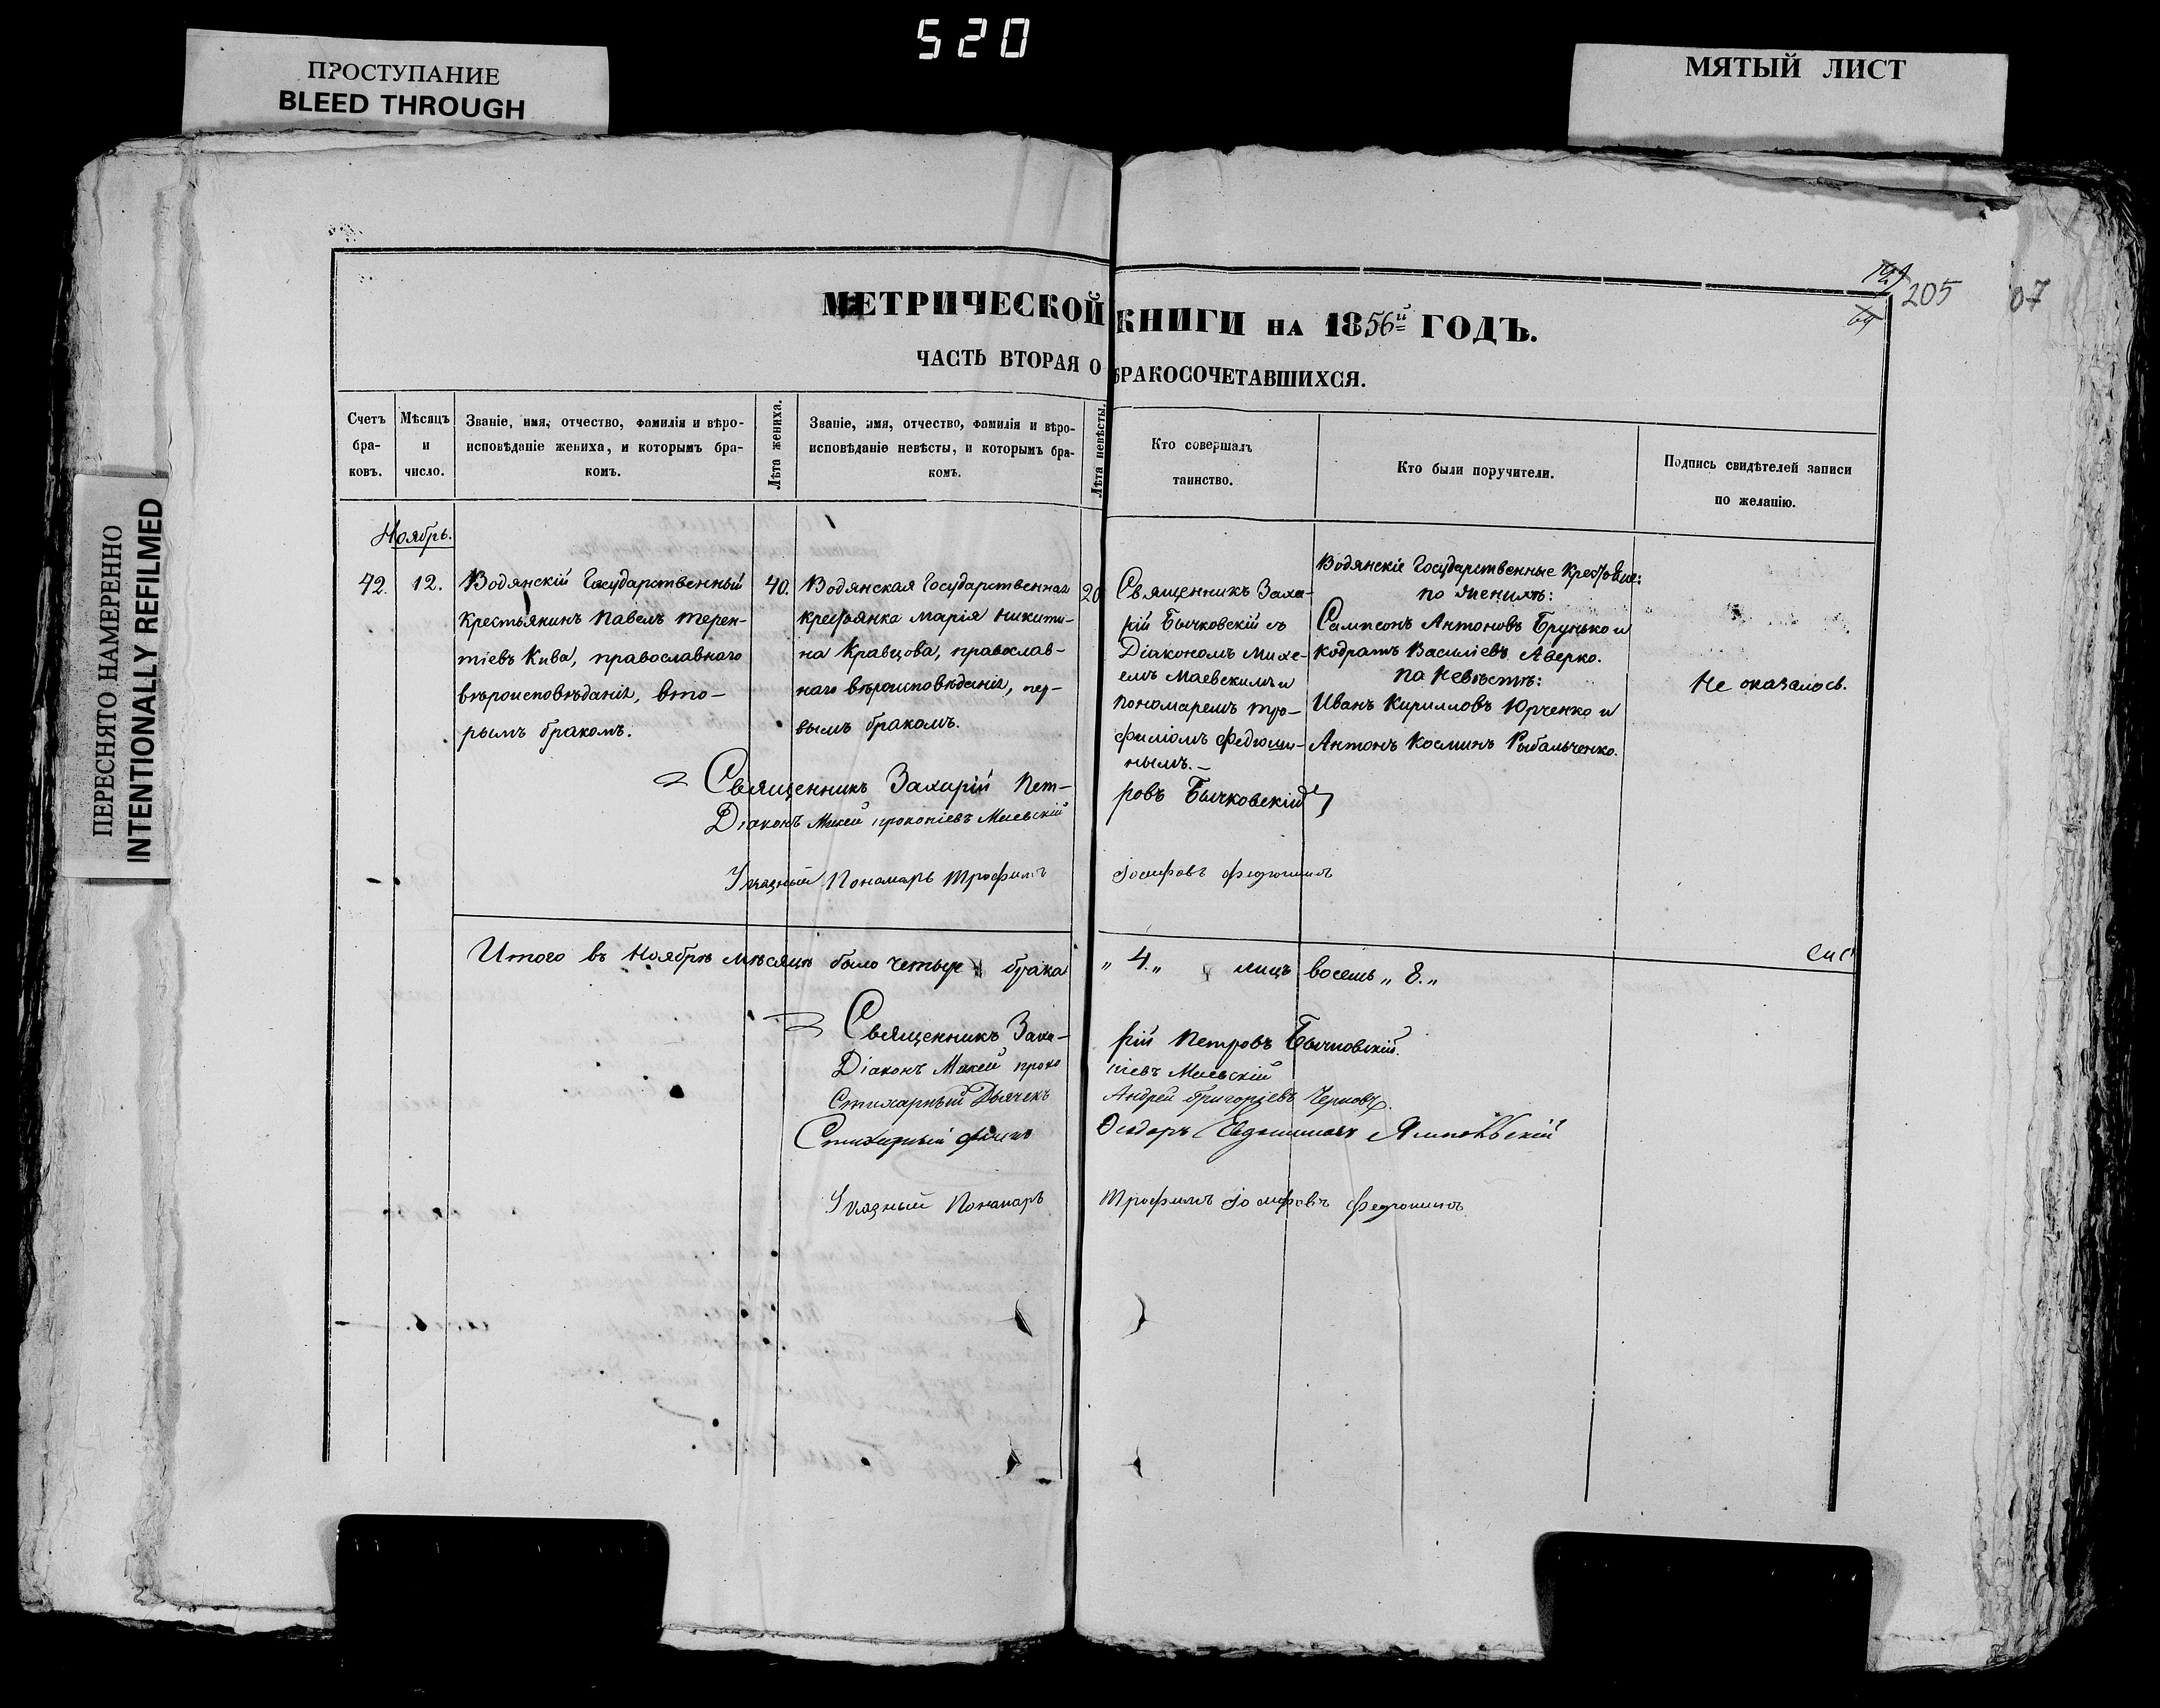 520
ПРОСТУПАНИЕ
BLEED THROUGH
МЯТЫЙ ЛИСТ
ПЕРЕСНЯТО НАМЕРЕННО
INTENTIONALLY REFILMED
205
07
МЕТРИЧЕСКОЙ КНИГИ НА 1856й ГОДЪ.
ЧАСТЬ ВТОРАЯ О БРАКОСОЧЕТАВШИХСЯ.
Счетъ
бра-
ковъ.
Мѣсяцъ
и
число.
Званіе, имя, отчество, фамилія и вѣро-
исповѣданіе жениха, и которымъ бра-
комъ.
Лѣта жениха.
Званіе, имя, отчество, фамилія и вѣро-
исповѣданіе невѣсты, и которымъ бра-
комъ.
Лѣта невѣсты.
Кто совершалъ
таинство.
Кто были поручители.
Подпись свидѣтелей записи
по желанію.
Ноябрь.
42.
12.
Водянскій Государственный
Крестьянинъ Павелъ Терен-
тіевъ Кива, православнаго
вѣроисповѣданія, вто-
рымъ бракомъ.
40.
Водянская Государственная
крестьянка Марія Никити-
на Кравцова, православ-
наго вѣроисповѣданія, пер-
вымъ бракомъ.
20
Священникъ Заха-
рій Бычковскій съ
Діакономъ Михе-
емъ Маевскимъ и
пономаремъ Тро-
фимомъ Федюши-
нымъ.
Водянскіе Государственные Крестьяне:
по женихѣ:
Сампсонъ Антоновъ Брунько и
Кодратъ Василіевъ Аверко.
по Невѣстѣ:
Иванъ Кирилловъ Юрченко и
Антонъ Косминъ Рыбальченко.
Не оказалось.
Священникъ Захарій Пет-
ровъ Бычковскій
Діаконъ Михей Прокопіевъ Маевскій
Указный Пономарь Трофимъ Іосифовъ Федюшинъ
Итого въ Ноябрѣ мѣсяцѣ было четыре брака „4.„ лицъ восемь „8.„
Священникъ Заха-
рій Петровъ Бычковскій.
Діаконъ Михей Прокопіевъ Маевскій
Стихарный Дьячекъ Андрей Григоріевъ
Стихарный Ѳеодоръ
Указный Пономарь Трофимъ Іосифовъ Федюшинъ